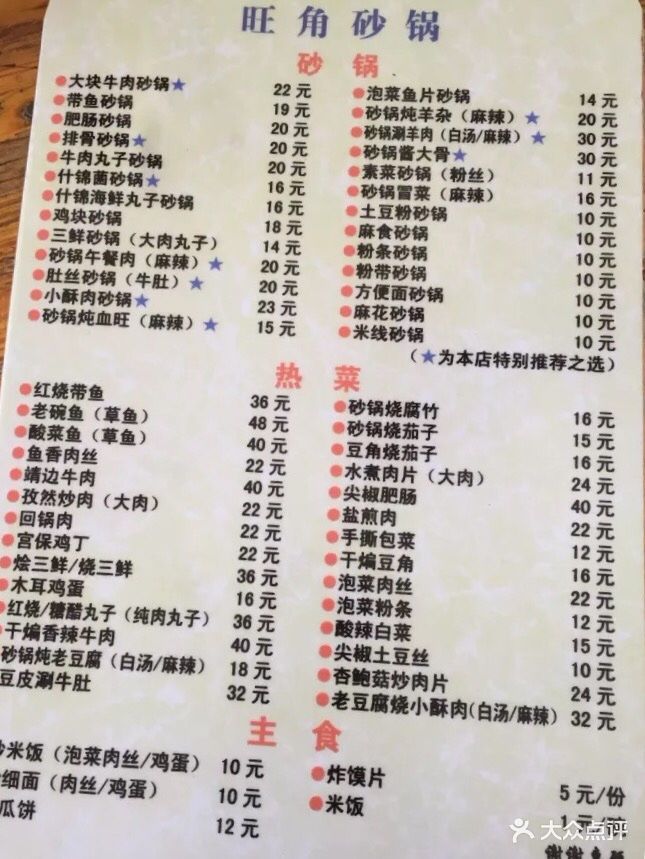 旺角砂锅
砂锅
大块牛肉砂锅★ 22元
带鱼砂锅 19元
肥肠砂锅 20元
排骨砂锅★ 20元
牛肉丸子砂锅 20元
什锦菌砂锅★ 16元
什锦海鲜丸子砂锅 16元
鸡块砂锅 18元
三鲜砂锅（大肉丸子） 14元
砂锅午餐肉（麻辣）★ 20元
肚丝砂锅（牛肚）★ 20元
小酥肉砂锅★ 23元
砂锅炖血旺（麻辣）★ 15元
泡菜鱼片砂锅 14元
砂锅炖羊杂（麻辣）★ 20元
砂锅涮羊肉（白汤/麻辣）★ 30元
砂锅酱大骨★ 30元
素菜砂锅（粉丝） 11元
砂锅冒菜（麻辣） 16元
土豆粉砂锅 10元
麻食砂锅 10元
粉条砂锅 10元
粉带砂锅 10元
方便面砂锅 10元
麻花砂锅 10元
米线砂锅 10元
（★为本店特别推荐之选）
热菜
红烧带鱼 36元
老碗鱼（草鱼） 48元
酸菜鱼（草鱼） 40元
鱼香肉丝 22元
靖边牛肉 40元
孜然炒肉（大肉） 22元
回锅肉 22元
宫保鸡丁 22元
烩三鲜/烧三鲜 36元
木耳鸡蛋 16元
红烧/糖醋丸子（纯肉丸子） 36元
干煸香辣牛肉 40元
砂锅炖老豆腐（白汤/麻辣） 18元
豆皮涮牛肚 32元
砂锅烧腐竹 16元
砂锅烧茄子 15元
豆角烧茄子 16元
水煮肉片（大肉） 24元
尖椒肥肠 40元
盐煎肉 22元
手撕包菜 12元
干煸豆角 16元
泡菜肉丝 22元
泡菜粉条 12元
酸辣白菜 15元
尖椒土豆丝 10元
杏鲍菇炒肉片 24元
老豆腐烧小酥肉（白汤/麻辣） 32元
主食
炒米饭（泡菜肉丝/鸡蛋） 10元
细面（肉丝/鸡蛋） 10元
瓜饼 12元
炸馍片 5元/份
米饭 1元/
大众点评
谢谢